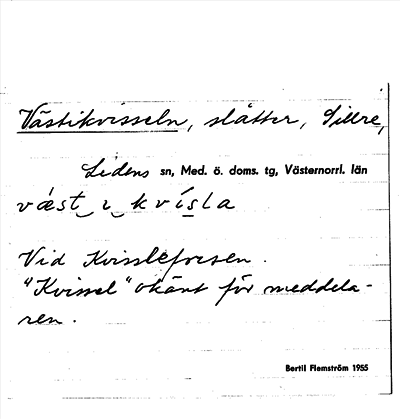 Västikvisseln, slåtter, Sillre,
Lidens sn, Med. ö. doms. tg, Västernorrl. län
vǽst i kvísla
Vid Kvisslefresen.
"Kvissel" okänt för meddela-
ren.
Bertil Flemström 1955